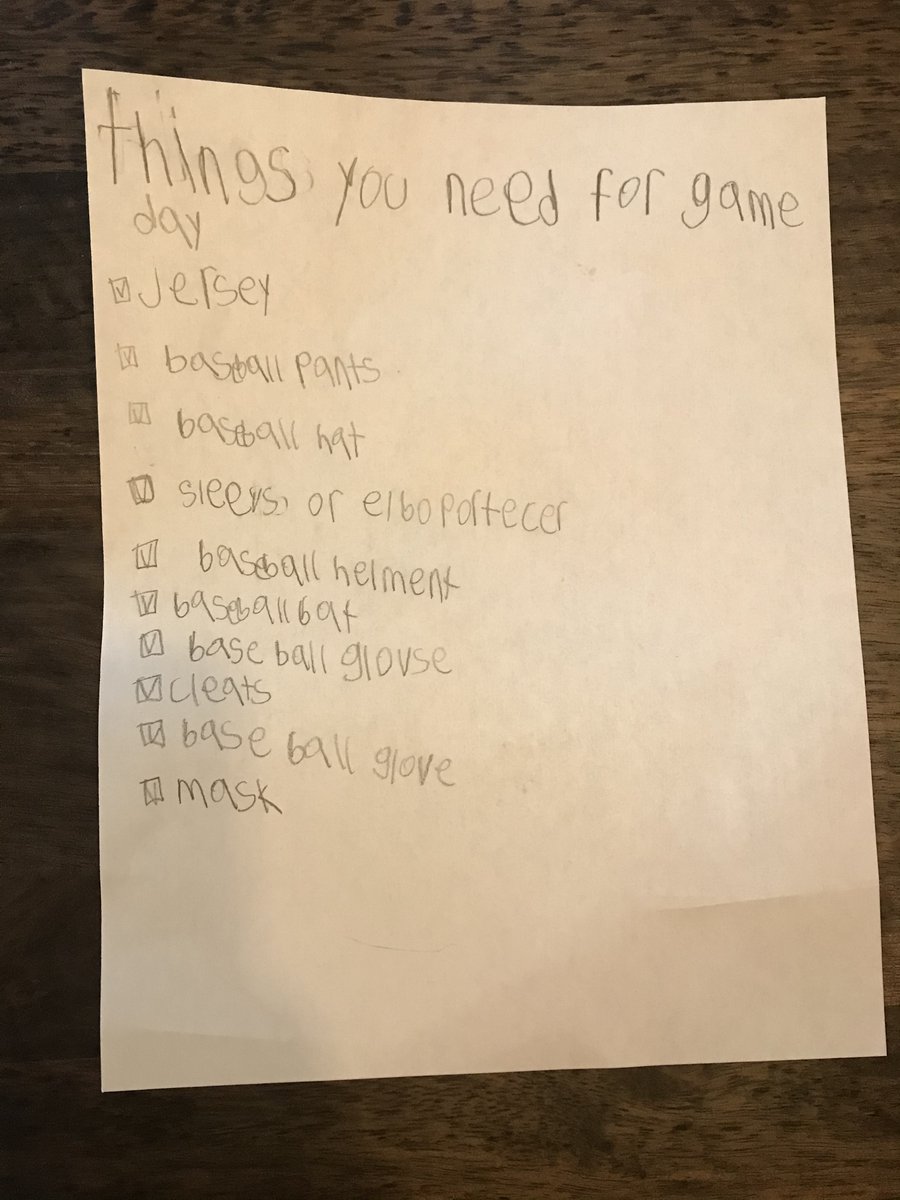 things you need for game
day
☑ Jersey
☑ baseball pants
☑ baseball hat
☑ sleevs or elbo portecer
☑ baseball helment
☑ baseball bat
☑ base ball glovse
☑ cleats
☑ base ball glove
☑ mask